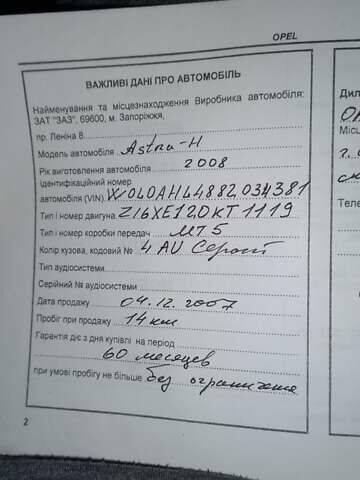 OPEL
ВАЖЛИВІ ДАНІ ПРО АВТОМОБІЛЬ
Найменування та місцезнаходження Виробника автомобіля:
ЗАТ "ЗАЗ", 69600, м. Запоріжжя,
пр. Леніна 8
Модель автомобіля Astra-H
Рік виготовлення автомобіля 2008
Ідентифікаційний номер
автомобіля (VIN) W0L0AHL4882034381
Тип і номер двигуна Z16XE120KT1119
Тип і номер коробки передач MT5
Колір кузова, кодовий № 4 AU Серый
Тип аудіосистеми
Серійний № аудіосистеми
Дата продажу 04.12.2007
Пробіг при продажу 14 км
Гарантія діє з дня купівлі на період
60 месяцев
при умові пробігу не більше без ограничения
2
Дил
Місц
Теле